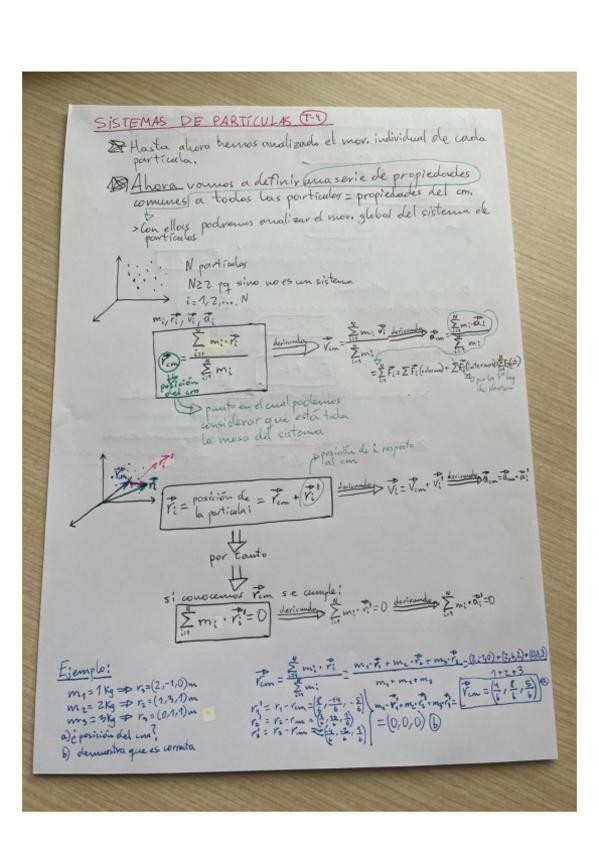 SISTEMAS DE PARTÍCULAS T-4
Hasta ahora hemos analizado el mov. individual de cada
partícula.
Ahora vamos a definir una serie de propiedades
comunes a todas las partículas = propiedades del cm.
> Con ellas podremos analizar el mov. global del sistema de
partículas
N partículas
N≥2 pq sino no es un sistema
i = 1, 2, ... N
mᵢ, r⃗ᵢ, v⃗ᵢ, a⃗ᵢ
r⃗cm = Σᵢ₌₁ᴺ mᵢ · r⃗ᵢ / Σᵢ₌₁ᴺ mᵢ derivando v⃗cm = Σᵢ₌₁ᴺ mᵢ v⃗ᵢ / Σᵢ₌₁ᴺ mᵢ derivando a⃗cm = Σᵢ₌₁ᴺ mᵢ · a⃗ᵢ / Σᵢ₌₁ᴺ mᵢ
posición
del cm
por la 3ª ley
de Newton
punto en el cual podemos
considerar que está toda
la masa del sistema
posición de i respecto
al cm
r⃗cm r⃗ᵢ' r⃗ᵢ
r⃗ᵢ = posición de la partícula i = r⃗cm + r⃗ᵢ' derivando v⃗ᵢ = v⃗cm + v⃗ᵢ' derivando
por tanto
si conocemos r⃗cm se cumple:
Σᵢ₌₁ᴺ mᵢ · r⃗ᵢ' = 0 derivando Σᵢ₌₁ᴺ mᵢ · v⃗ᵢ' = 0 derivando Σᵢ₌₁ᴺ mᵢ · a⃗ᵢ' = 0
Ejemplo:
m₁ = 1 Kg ⇒ r₁ = (2, -1, 0) m
m₂ = 2 Kg ⇒ r₂ = (1, 3, 1) m
m₃ = 3 Kg ⇒ r₃ = (0, 1, 1) m
a) ¿posición del cm?
b) demuestra que es correcta
r⃗cm = Σᵢ₌₁ᴺ mᵢ · r⃗ᵢ / Σᵢ₌₁ᴺ mᵢ = m₁ · r⃗₁ + m₂ · r⃗₂ + m₃ · r⃗₃ / m₁ + m₂ + m₃ = (2,-1,0) + (2,6,2) + (0,3,3) / 1+2+3
r⃗cm = (4/6, 8/6, 5/6) a)
r₁' = r₁ - rcm
r₂' = r₂ - rcm
r₃' = r₃ - rcm
m₁ · r⃗₁' + m₂ · r⃗₂' + m₃ · r⃗₃' =
= (0,0,0) b)